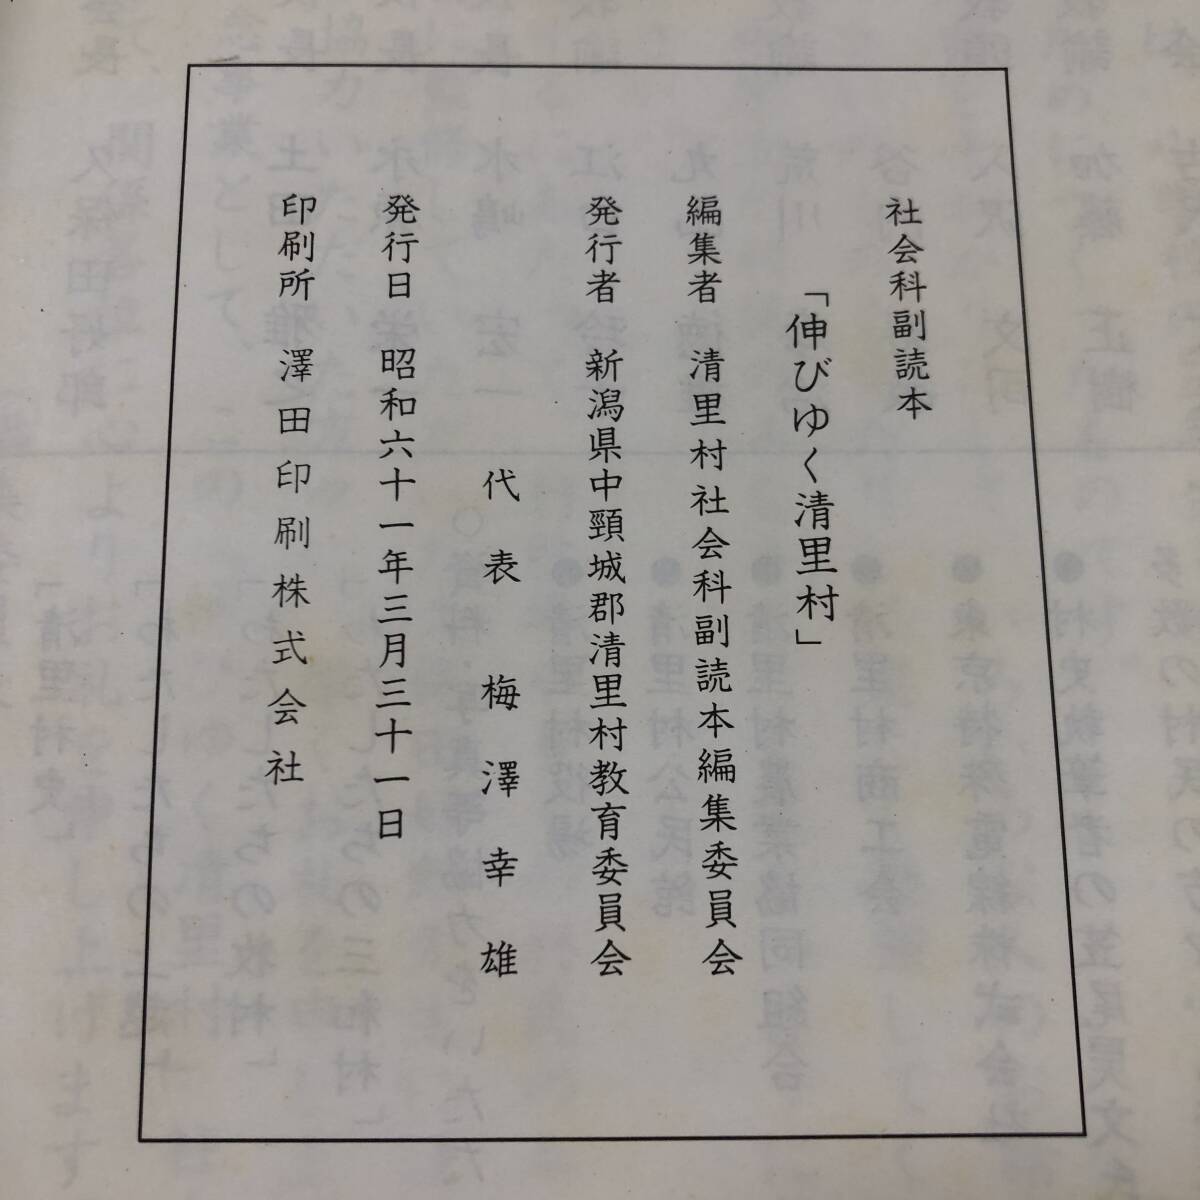 社会科副読本
「伸びゆく清里村」
編集者 清里村社会科副読本編集委員会
発行者 新潟県中頸城郡清里村教育委員会
代表 梅澤幸雄
発行日 昭和六十一年三月三十一日
印刷所 澤田印刷株式会社